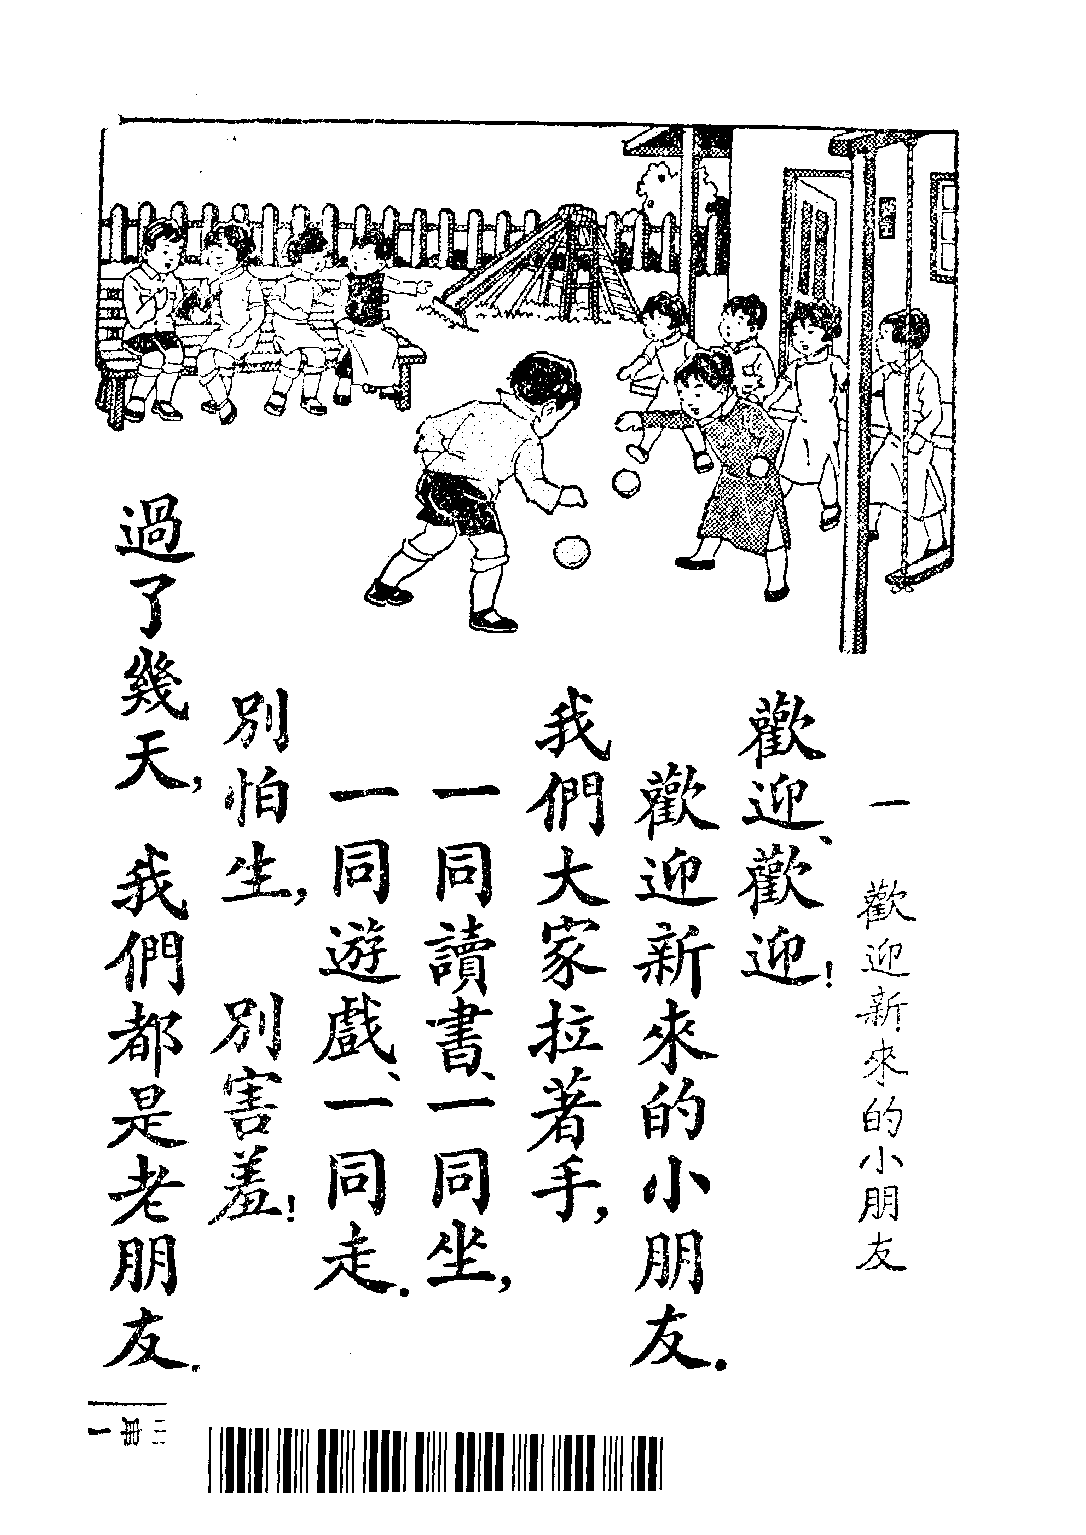 一 歡迎新來的小朋友
歡迎、歡迎!
歡迎新來的小朋友.
我們大家拉著手,
一同讀書、一同坐,
一同遊戲、一同走.
別怕生, 別害羞!
過了幾天, 我們都是老朋友.